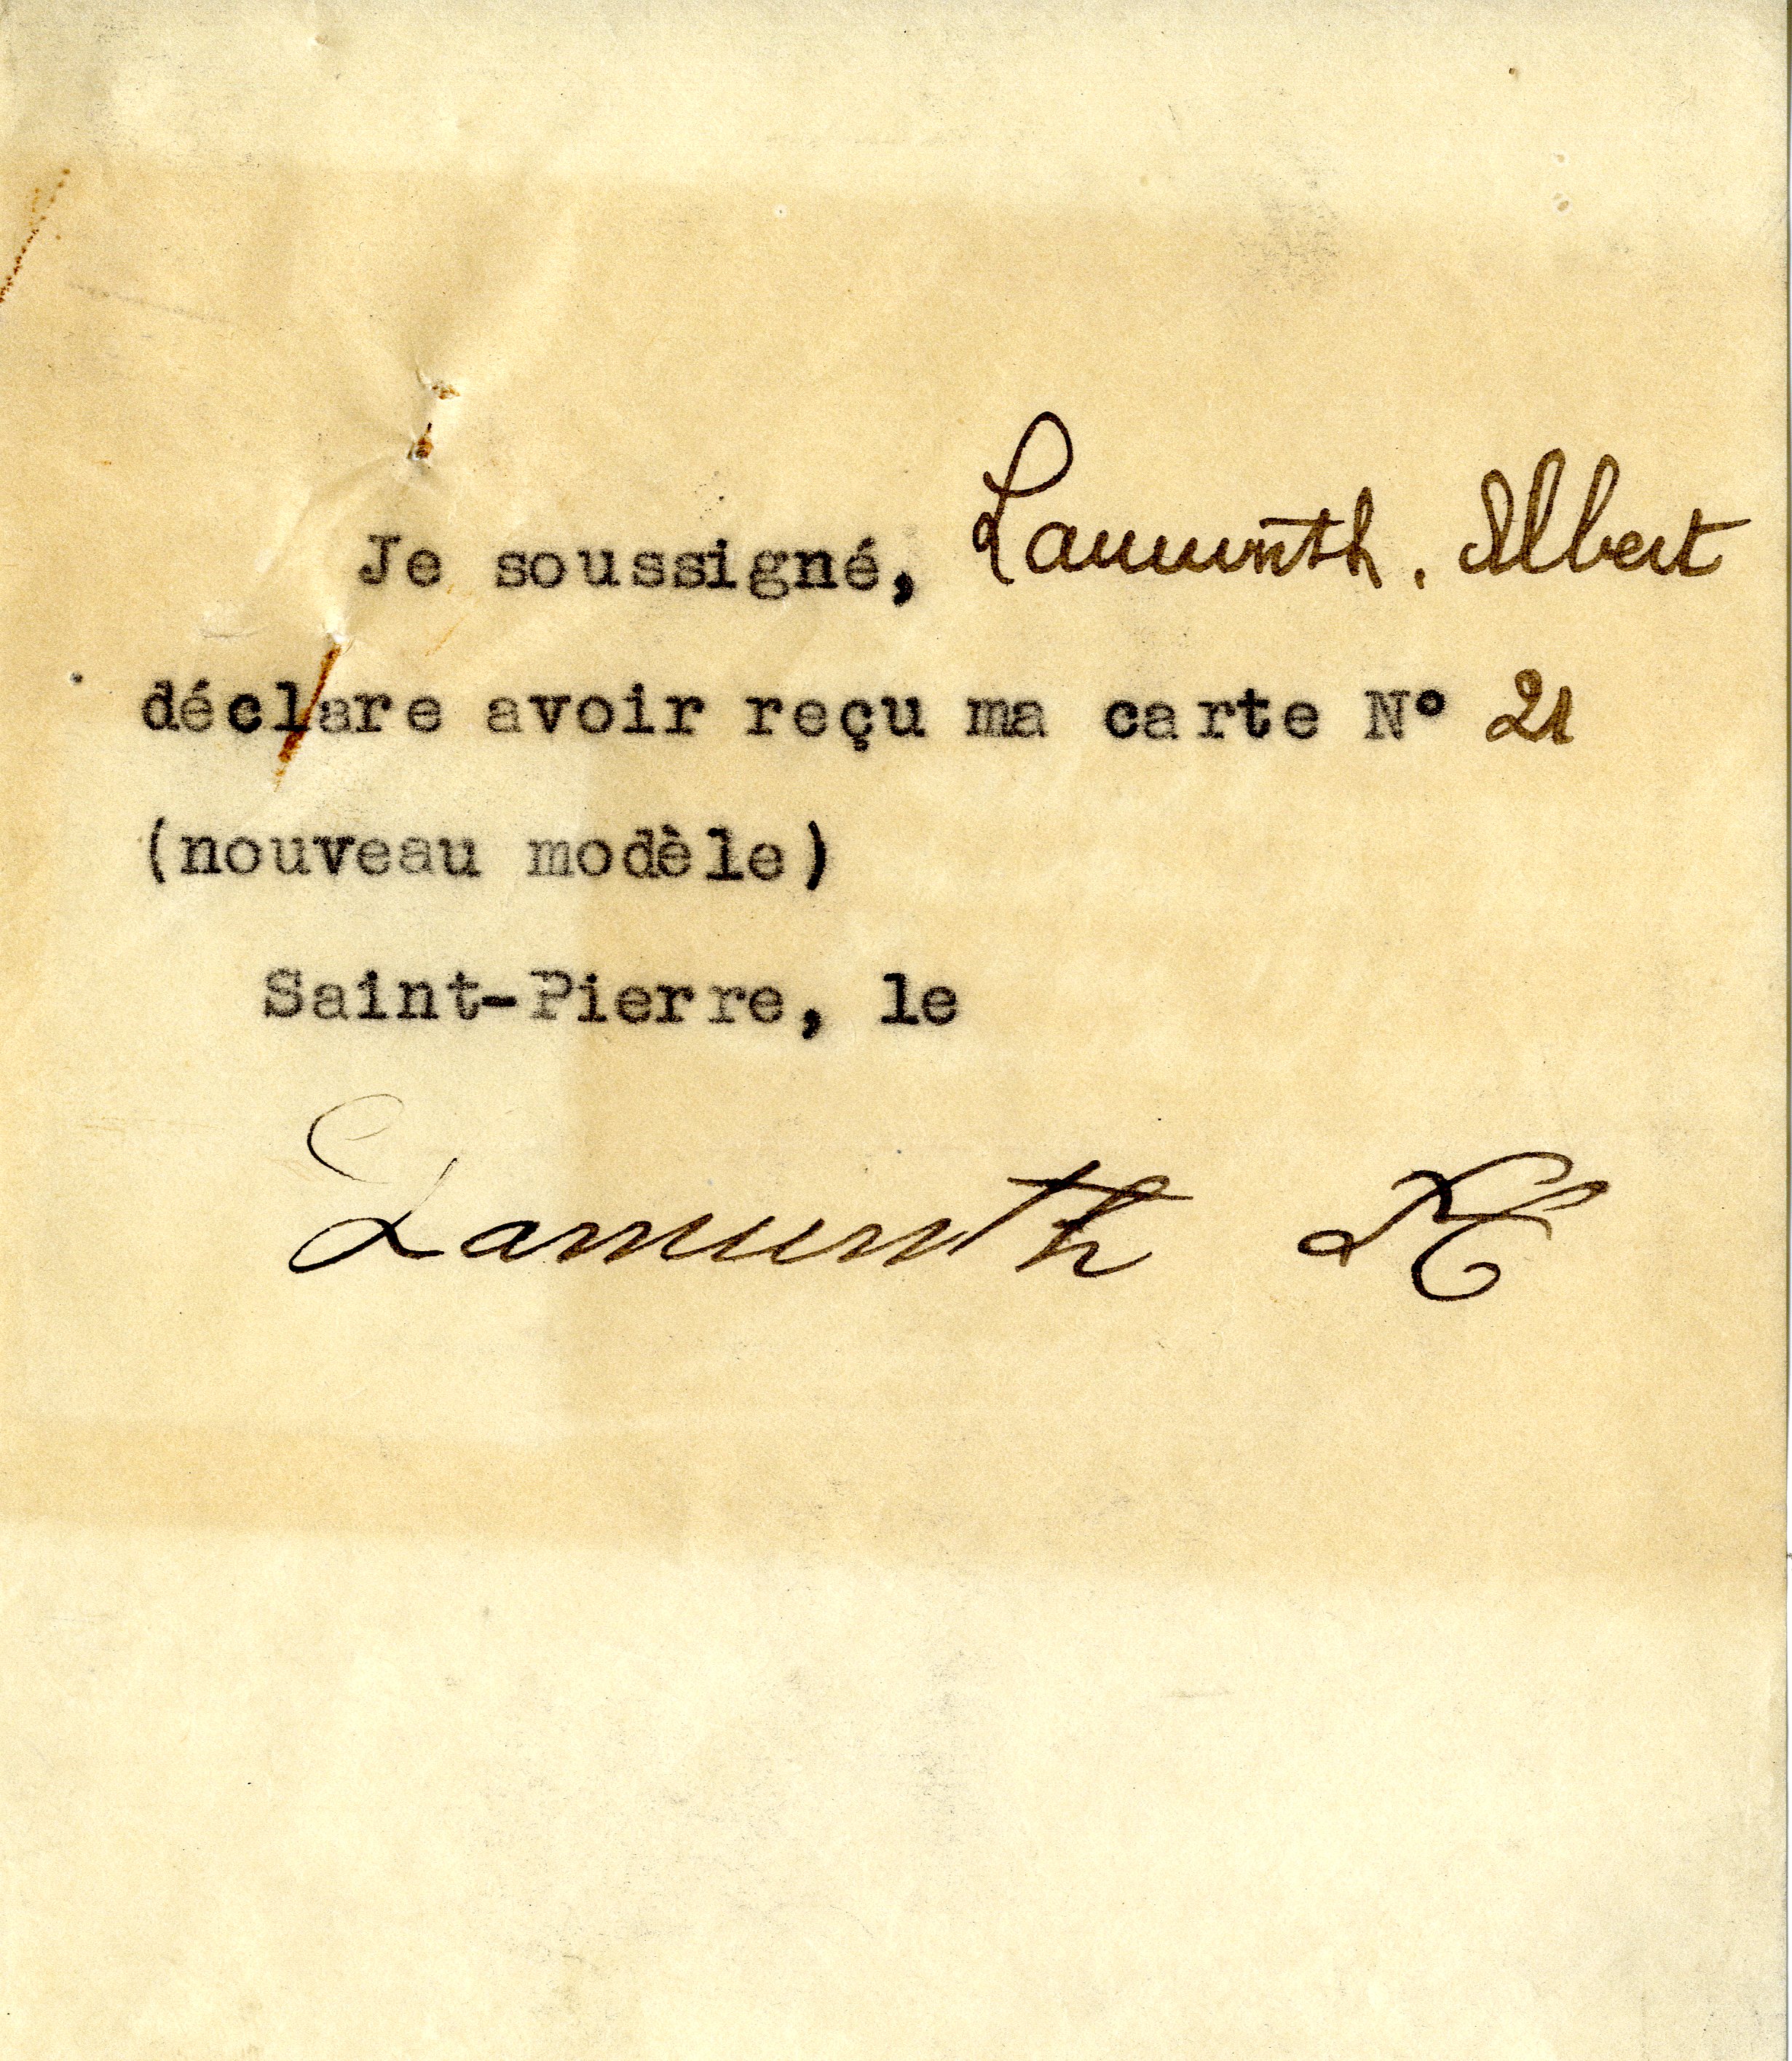 Je soussigné, Lamunth. Albert
déclare avoir reçu ma carte N° 21
(nouveau modèle)
Saint-Pierre, le
Lamunth